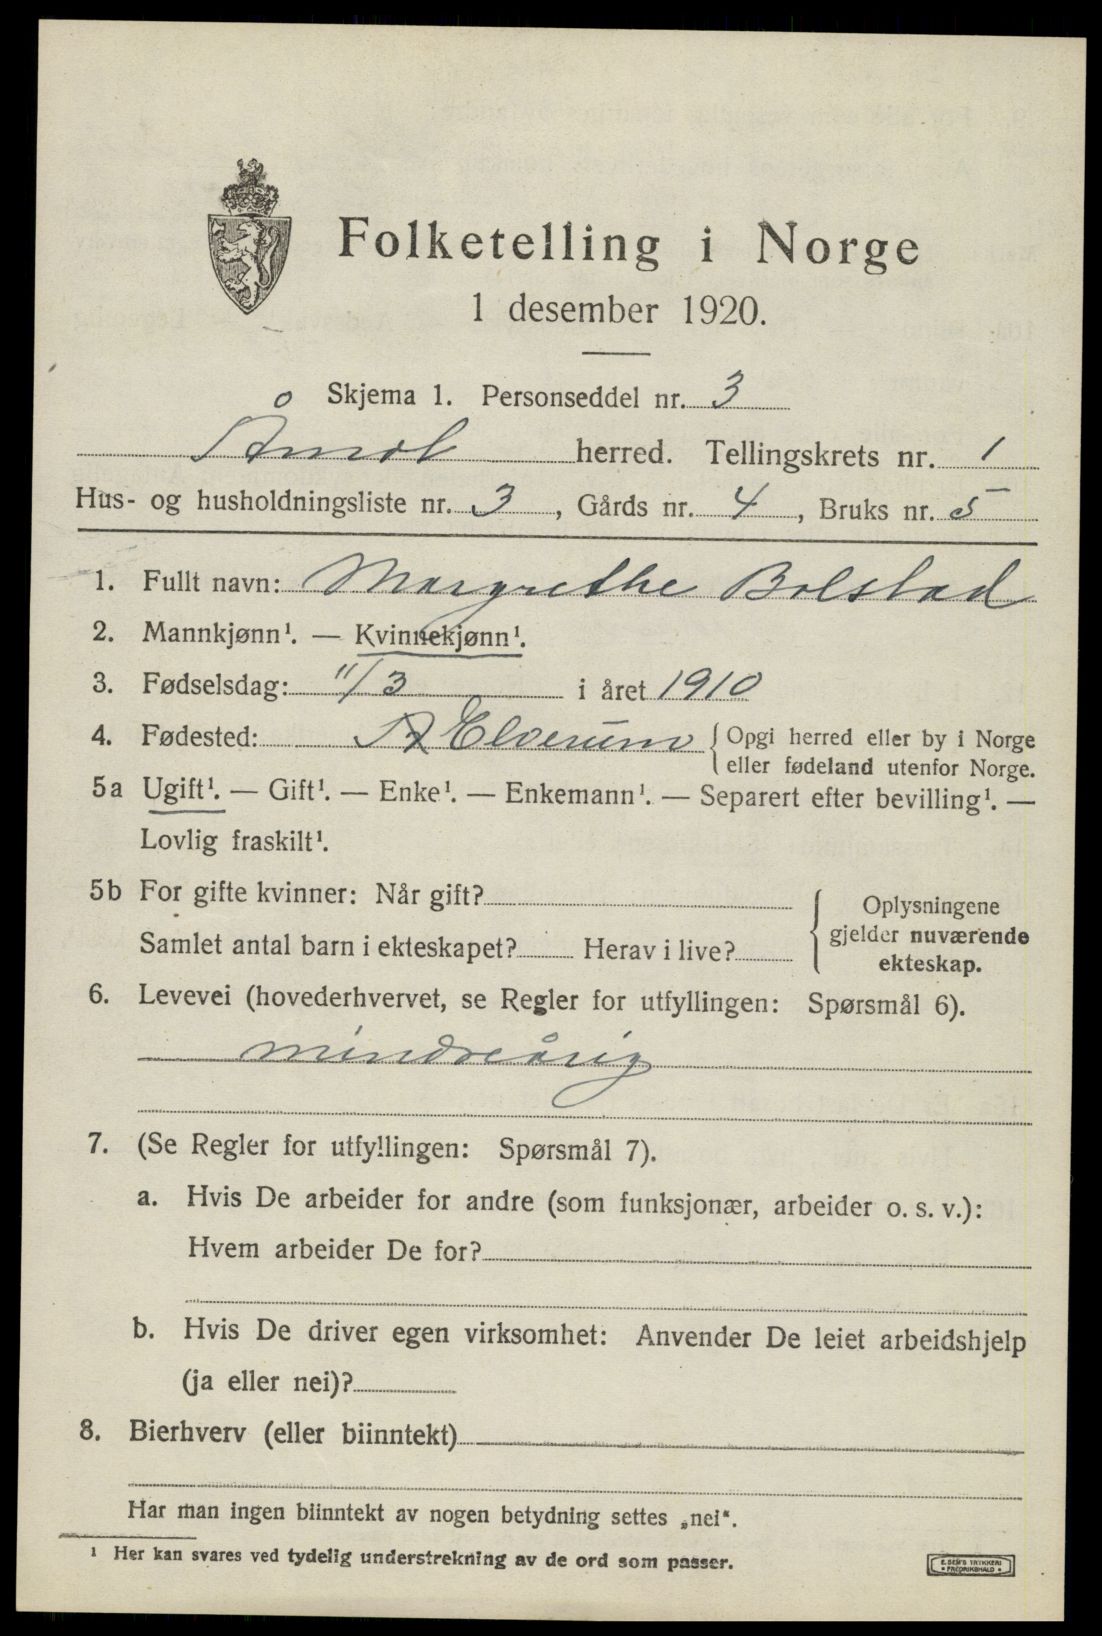 Folketelling i Norge
1 desember 1920.
Skjema 1. Personseddel nr. 3
Åmot herred. Tellingskrets nr. 1
Hus- og husholdningsliste nr. 3, Gårds nr. 4, Bruks nr. 5
1. Fullt navn: Margrethe Bolstad
2. Mannkjønn¹. — Kvinnekjønn¹.
3. Fødselsdag: 11/3 i året 1910
4. Fødested: Elverum { Opgi herred eller by i Norge
eller fødeland utenfor Norge.
5a Ugift¹. — Gift¹. — Enke¹. — Enkemann¹. — Separert efter bevilling¹. —
Lovlig fraskilt¹.
5b For gifte kvinner: Når gift?
Samlet antal barn i ekteskapet? Herav i live?
{ Oplysningene
gjelder nuværende
ekteskap.
6. Levevei (hovederhvervet, se Regler for utfyllingen: Spørsmål 6).
mindreårig
7. (Se Regler for utfyllingen: Spørsmål 7).
a. Hvis De arbeider for andre (som funksjonær, arbeider o. s. v.):
Hvem arbeider De for?
b. Hvis De driver egen virksomhet: Anvender De leiet arbeidshjelp
(ja eller nei)?
8. Bierhverv (eller biinntekt)
Har man ingen biinntekt av nogen betydning settes „nei“.
¹ Her kan svares ved tydelig understrekning av de ord som passer.
E. SEM'S TRYKKERI
• FREDRIKSHALD •